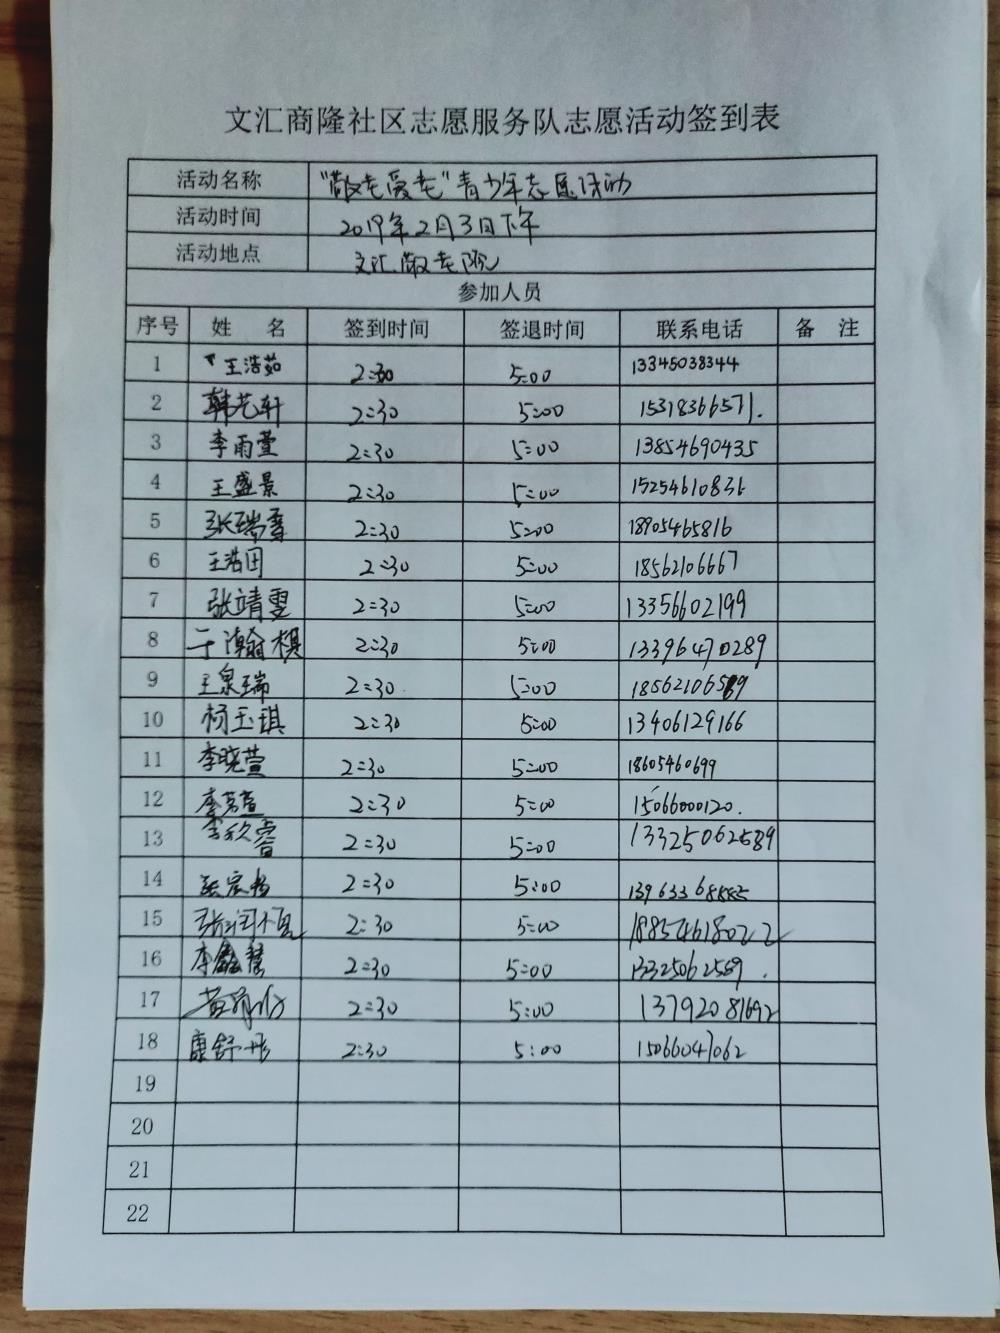 文汇商隆社区志愿服务队志愿活动签到表
活动名称 "敬老爱老"青少年志愿活动
活动时间 2019年2月3日下午
活动地点 文汇敬老院
参加人员
序号 姓 名 签到时间 签退时间 联系电话 备 注
1 王浩茹 2:30 5:00 13345038344
2 韩艺轩 2:30 5:00 15318366571.
3 李雨萱 2:30 5:00 13854690435
4 王盛景 2:30 5:00 15254610836
5 张瑞雪 2:30 5:00 18905465816
6 王浩田 2:30 5:00 18562106667
7 张靖雯 2:30 5:00 13356602199
8 于瀚棋 2:30 5:00 13396470289
9 王泉瑞 2:30 5:00
10 杨玉琪 2:30 5:00 13406129166
11 李晓萱 2:30 5:00 18605460699
12 李茗萱 2:30 5:00 15066000120.
13 李欣睿 2:30 5:00 13325062589
14 2:30 5:00
15 2:30 5:00 18854618022
16 李鑫慧 2:30 5:00 13325062589.
17 2:30 5:00 13792081692
18 康舒彤 2:30 5:00 15066047062
19
20
21
22